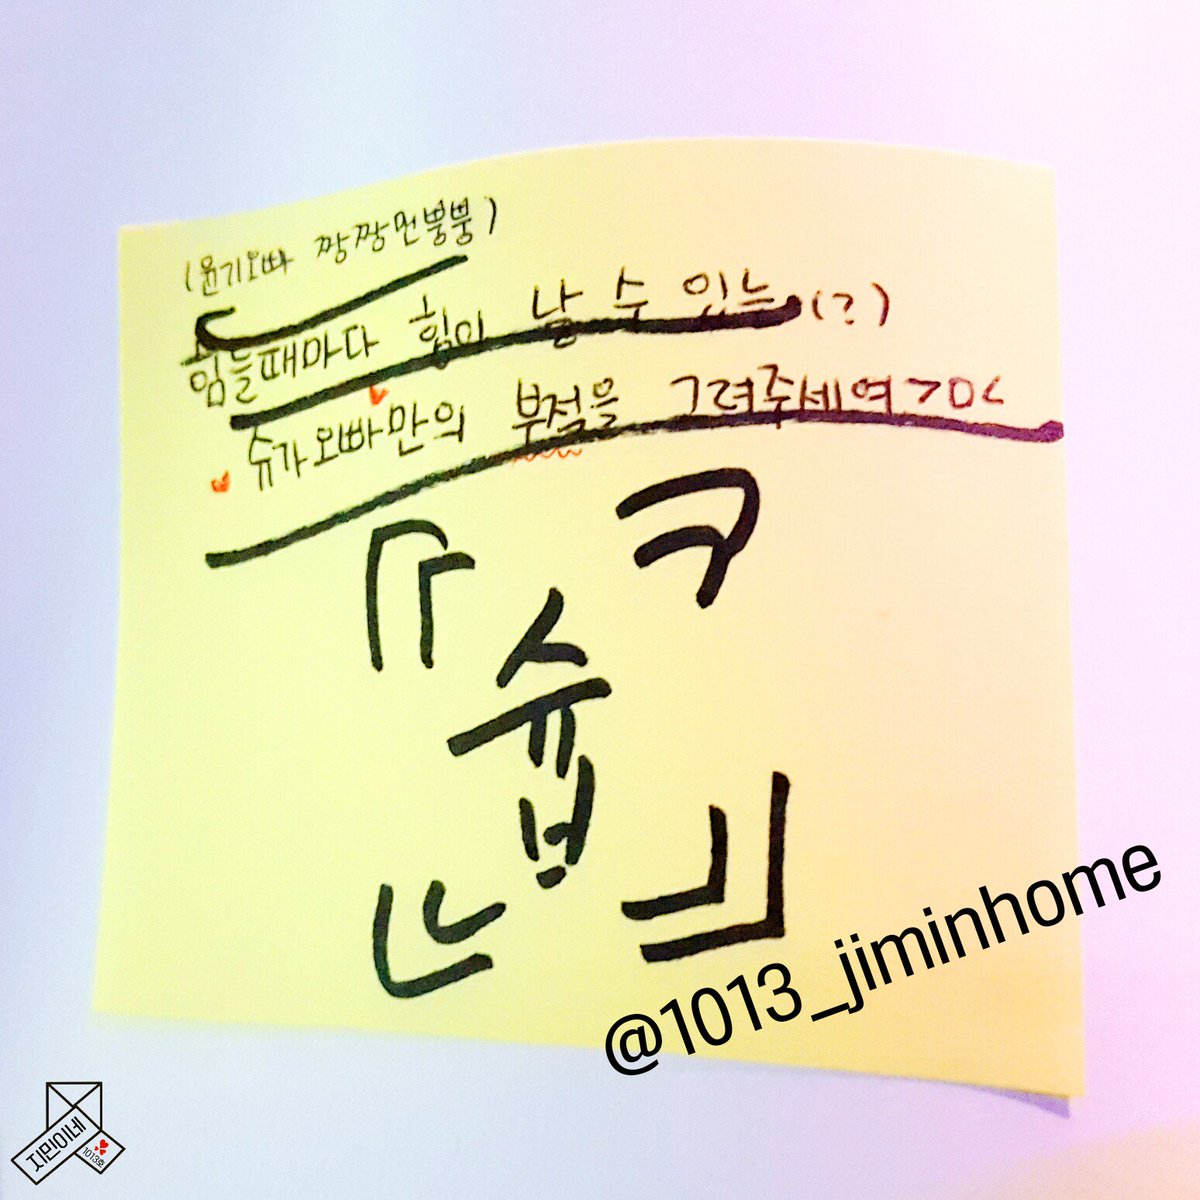 (윤기오빠 짱짱먼뿡뿡)
힘들때마다 힘이 날 수 있는 (?)
슈가오빠만의 부점을 그려주세여>ㅁ<
슙
@1013_jiminhome
지민이네
1013호